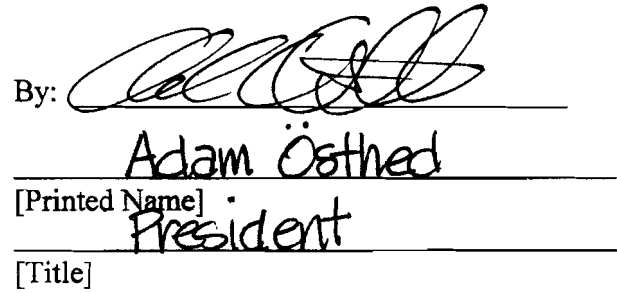 By:
Adam Östhed
[Printed Name]
President
[Title]